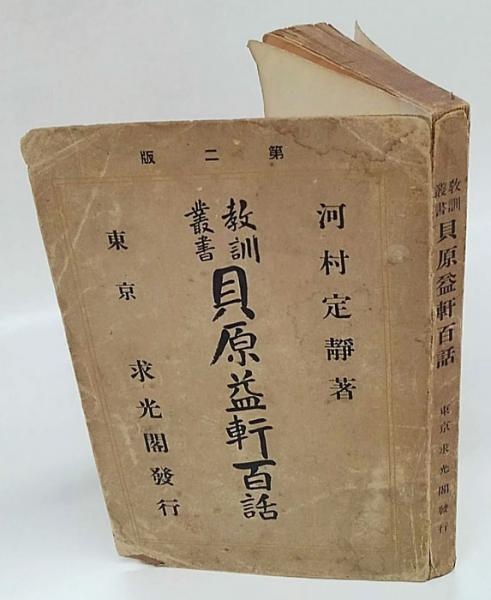 第二版
河村定靜著
教訓叢書
貝原益軒百話
東京
求光閣發行
教訓叢書
貝原益軒百話
東京求光閣發行